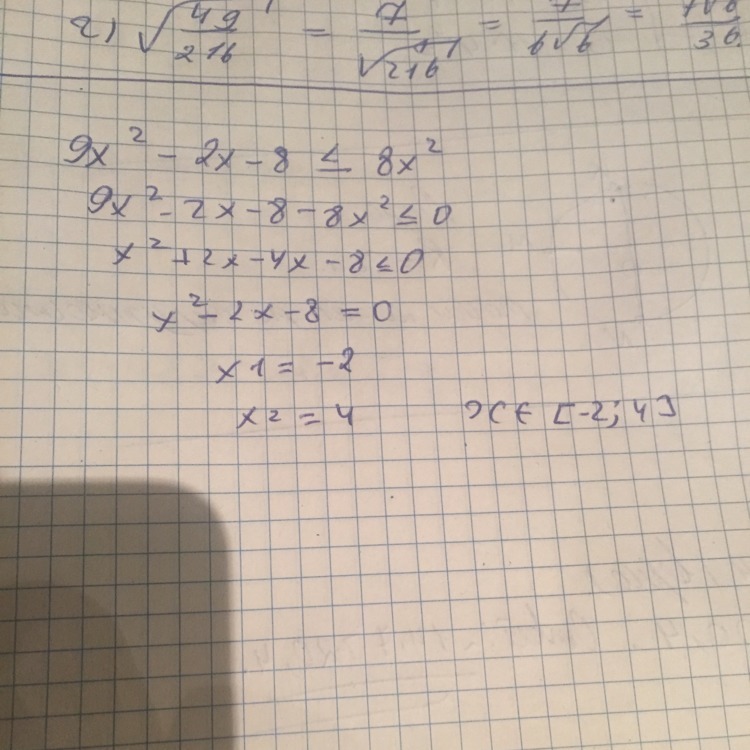 г) √49/216 = 7/√216 = 7/6√6 = 7√6/36
9x² - 2x - 8 ≤ 8x²
9x² - 2x - 8 - 8x² ≤ 0
x² + 2x - 4x - 8 ≤ 0
x² - 2x - 8 = 0
x1 = -2
x2 = 4 x ∈ [-2; 4]